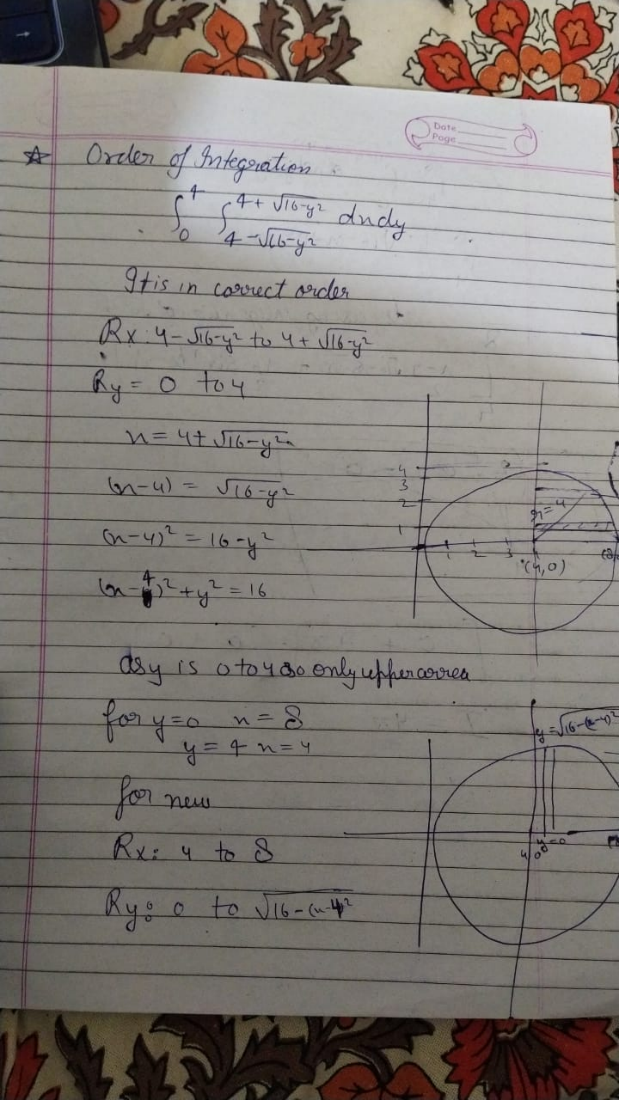 Date
Page
☆ Order of Integration
∫₀⁴ ∫_{4-√16-y²}^{4+√16-y²} dxdy
It is in correct order
Rx: 4-√16-y² to 4+√16-y²
Ry = 0 to 4
x = 4+√16-y²
(x-4) = √16-y²
(x-4)² = 16-y²
(x-4)²+y² = 16
4
3
2
1
x=4
1 2 3
(4,0)
as y is 0 to 4 so only upper area
for y=0 x = 8
y = 4 x = 4
for new
Rx: 4 to 8
Ry: 0 to √16-(x-4)²
y=√16-(x-4)²
4
y=0